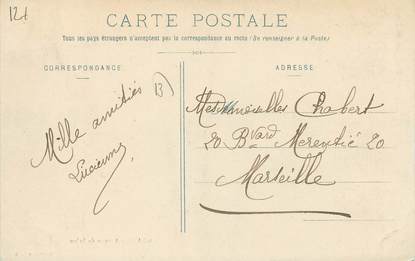 121
CARTE POSTALE
Tous les pays étrangers n'acceptent pas la correspondance au recto (Se renseigner à la Poste)
CORRESPONDANCE
ADRESSE
B)
Mille amitiés
Lucienne
Mesdemoiselles Chabert
20 Bvard Merentié 20
Marseille